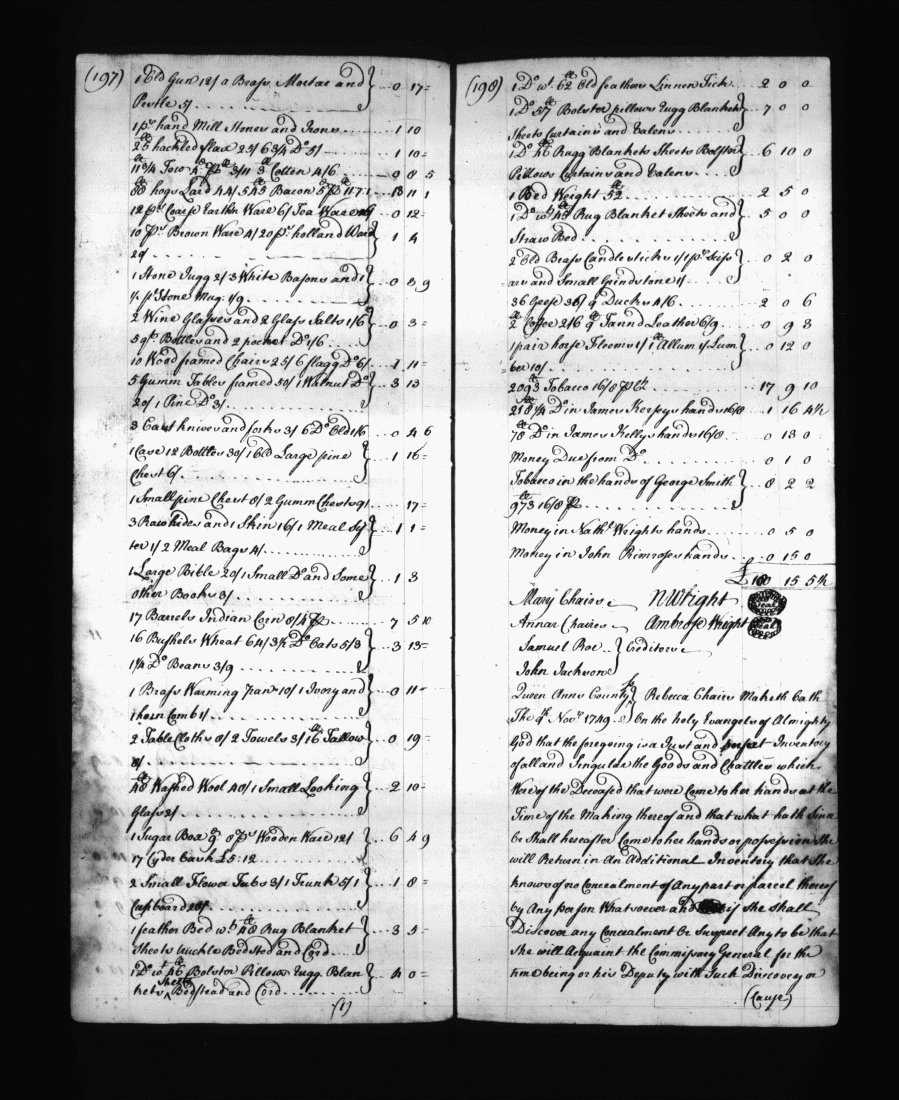 (197)
1 Old Gun 12/ a Brass Mortar and
Pestle 5/ 0 17 =
1 pr hand Mill Stones and Irons 1 10
25 hackled flax 25/ 6 3/4 Do 5/ 1 10 =
11 3/4 Tow 3/11 3 Cotten 4/6 0 8 5
88 hogs Lard 44/ 545 Bacon 5 P 11.7.1 13 11 1
12 ps Coarse Earthn Ware 6/ Tea Ware 6/ 0 12 =
10 ps Brown Ware 4/ 20 ps holland Ware
20/ 1 4
1 Stone Jugg 2/ 3 White Basons and 1
1/2 pt Stone Mug 1/9 0 8 9
2 Wine Glasses and 2 Glass Salts 1/6
5 qt Bottles and 2 pocket Do 1/6 0 3 =
10 Wood framed Chairs 25/ 6 flagg Do 6/ 1 11 =
5 Gumm Tables framed 50/ 1 Walnut Do
20/ 1 Pine Do 3/ 3 13
3 Cast knives and forks 3/ 6 Do Old 1/6 0 4 6
1 Case 12 Bottles 30/ 1 Old Large pine
Chest 6/ 1 16 =
1 Small pine Chest 8/ 2 Gumm Chests 9/ 17 =
3 Raw hides and 1 Skin 16/ 1 Meal Sif
ter 1/ 2 Meal Bags 4/ 1 1 =
1 Large Bible 20/ 1 Small Do and Some
other Books 3/ 1 3
17 Barrels Indian Corn 8/4 P 7 5 10
16 Bushels Wheat 64/ 3 1/2 Do Oats 5/3
1 1/4 Do Beans 3/9 3 13 =
1 Brass Warming Pan 10/ 1 Ivory and
1 horn Comb 1/ 0 11 =
2 Table Cloths 8/ 2 Towels 3/ 16 Tallow
8/ 0 19 =
40 Washed Wool 40/ 1 Small Looking
Glass 2/ 2 10 =
1 Sugar Box 9 8 ps Wooden Ware 12/
17 Cyder Cask £5.12 6 4 9
2 Small Flower Tubs 3/ 1 Trunk 5/ 1
Cupboard 20/ 1 8 =
1 feather Bed wt 48 Rug Blanket
Sheets truckle Bedsted and Cord 3 5 =
1 Do wt 46 Bolster Pillows Rugg Blan
kets Sheets Bedstead and Cord 4 0 =
(1)
(198)
1 Do wt 62 Old feathers Linnen Tick 2 0 0
1 Do 57 Bolster pillows Rugg Blanket
Sheets Curtains and Valens 7 0 0
1 Do 46 Rugg Blankets Sheets Bolster
Pillows Curtains and Valens 6 10 0
1 Bed Weight 52 2 5 0
1 Do wt 45 Rug Blanket Sheets and
Straw Bed 5 0 0
2 Old Brass Candlesticks 1/ 1 pr Sciss
ars and Small Grindstone 1/ 0 2 0
36 Geese 36/ 9 Ducks 4/6 2 0 6
2 Coffee 2/6 9 Tannd Leather 6/9 0 9 3
1 pair horse Fleems 1/ 1 Allum 1/ Lum
ber 10/ 0 12 0
2093 Tobacco 16/8 P Ct 17 9 10
218 1/4 Do in James Kerseys hands 16/8 1 16 4 1/2
78 Do in James Kellys hands 16/8 0 13 0
Money Due from Do 0 1 0
Tobacco in the hands of George Smith
973 16/8 P 8 2 2
Money in Nathl Wrights hands 0 5 0
Money in John Primroses hands 0 15 0
£ 180 15 5 1/2
Mary Chaires NWright Seal
Annar Chaires Ambrose Wright Seal
Samuel Roe } Creditors
John Jackson
Queen Anns County ss Rebecca Chaires Maketh Oath
The 9th Novr 1749 On the holy Evangels of Almighty
God that the foregoing is a Just and perfect Inventory
of all and Singular the Goods and Chattles which
Were of the Deceased that were Come to her hands at the
Time of the Making thereof and that what hath Since
Or Shall hereafter Come to her hands or possession She
will Return in An Additional Inventory that She
knows of no Concealment of Any part or parcel thereof
by Any person Whatsoever and if She Shall
Discover any Concealment Or Suspect Any to be that
She will Acquaint the Commissary General for the
time being or his Deputy with Such Discovery or
(Cause)